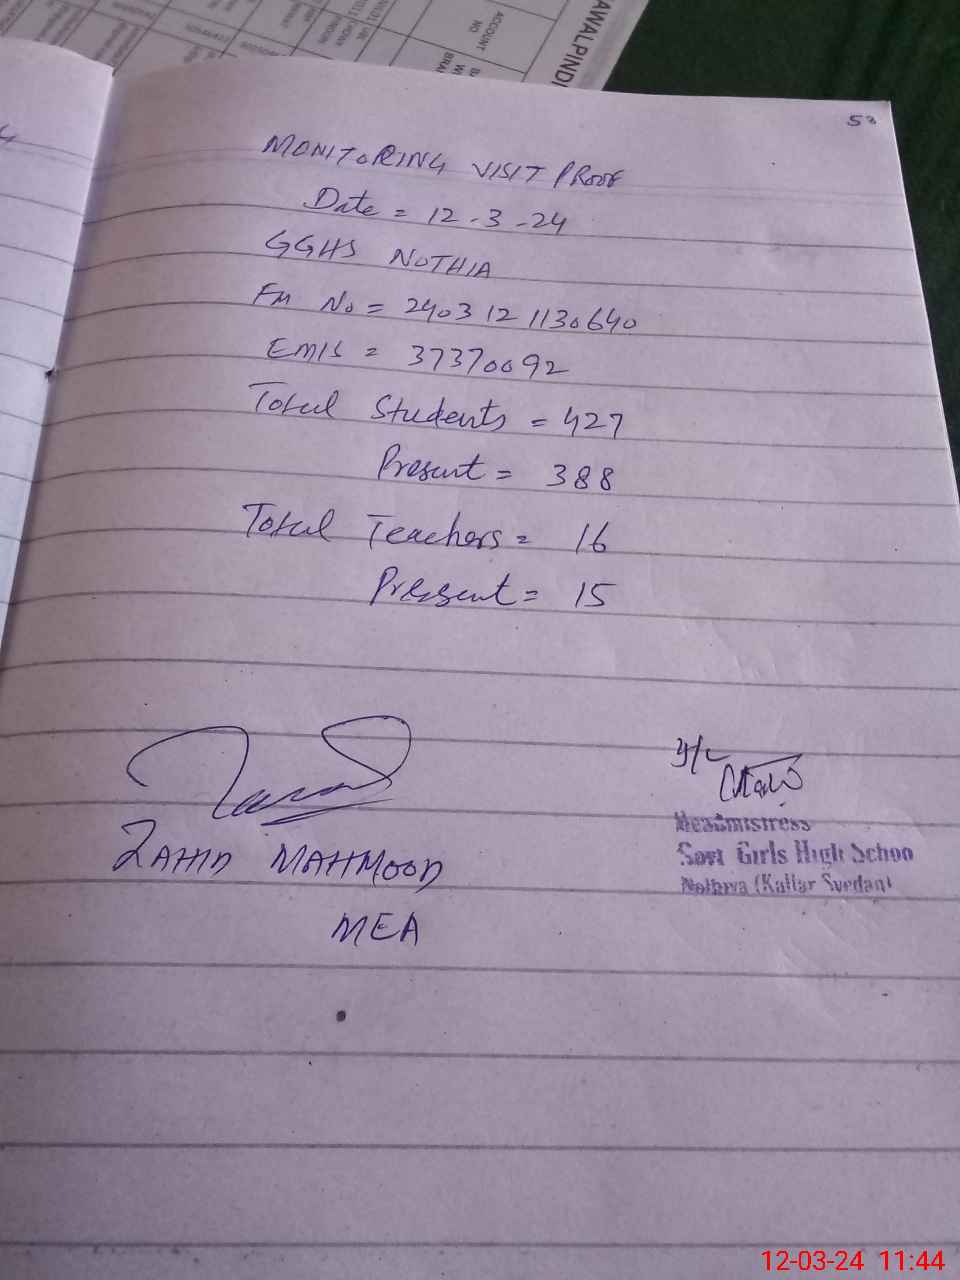 AWALPINDI
ACCOUNT
NO
53
MONITORING VISIT PROOF
Date = 12-3-24
GGHS NOTHIA
Fm No = 2403121130640
EMIS = 37370092
Total Students = 427
Present = 388
Total Teachers = 16
Pressent = 15
ZAHID MAHMOOD
MEA
Headmistress
Govt Girls High Schoo
Nothya (Kallar Syedan)
12-03-24 11:44